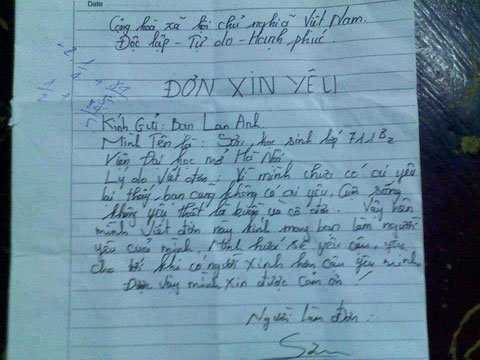 Date
Cộng hoà xã hội chủ nghĩa Việt Nam.
Độc lập - Tự do - Hạnh phúc.
ĐƠN XIN YÊU
Kính Gửi: Bạn Lan Anh
Mình Tên là: Sơn, học sinh lớp 711B2
Viện Đại học mở Hà Nội,
Lý do Viết đơn: Vì mình chưa có ai yêu
lại thấy bạn cũng không có ai yêu, Cuộc sống
không yêu thật là buồn và cô đơn. Vậy nên
mình Viết đơn này kính mong bạn làm người
yêu của mình. Mình hứa sẽ yêu cậu, yêu
cho tới khi có người xinh hơn cậu yêu mình
Được vậy mình xin được cảm ơn!
Người làm Đơn: